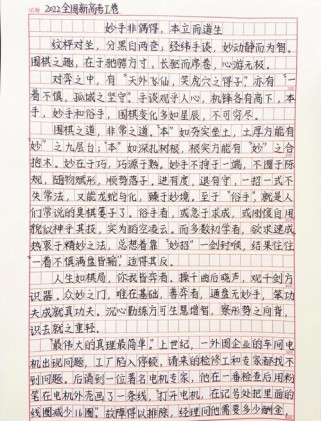 2022全国新高考I卷
妙手非偶得，本立而道生
纹枰对坐，分黑白两奁，经纬手谈，妙动静而为智，
围棋之趣，在于驰骋方寸，长驱而席卷，心游无极。
对弈之中，有“天外飞仙，笑虎穴之得子”，亦有“一
着不慎，孤城之坚守”。手谈观乎人心，机锋各有高下，本
手，妙手和俗手，围棋变化多如星辰，不可穷尽。
围棋之道，非常之道。“本”如夯实垒土，土厚方能有
“妙”之九层台；“本”如深扎树根，根实方能有“妙”之合
抱木。妙在于巧，巧源于熟。妙手不拘于一端，不圄于陈
规，随物赋形，顺势落子。进有度，退有守，一招一式不
失常法，又能龙蛇与化，臻于妙境。至于“俗手”，就是人
们常说的臭棋篓子了。俗手者，或急于求成，或刚愎自用
貌似神乎其技，实为蹈空凌云。而多数初学者，欲求速成
热衷于精妙之法，总想着靠“妙招”一剑封喉，结果往往
“一着不慎满盘皆输”，适得其反。
人生如棋局，你我皆弈者。操千曲后晓声，观千剑方
识器，众妙之门，唯在基础，善弈者，通盘无妙手，笨功
夫成就真功夫。沉心勤练方可生慧增智，察形势之向背，
识去就之重轻。
“最伟大的真理最简单。”上世纪，一外国企业的车间电
机出现问题，工厂陷入停顿，请来的检修工和专家都找不
到问题。后请到一位著名电机专家，他在一番检查后用粉
笔在电机外壳画了一个圈。“打开电机，在记号处把里面的
线圈减少16圈。”故障得以排除，经理问他需要多少酬金，